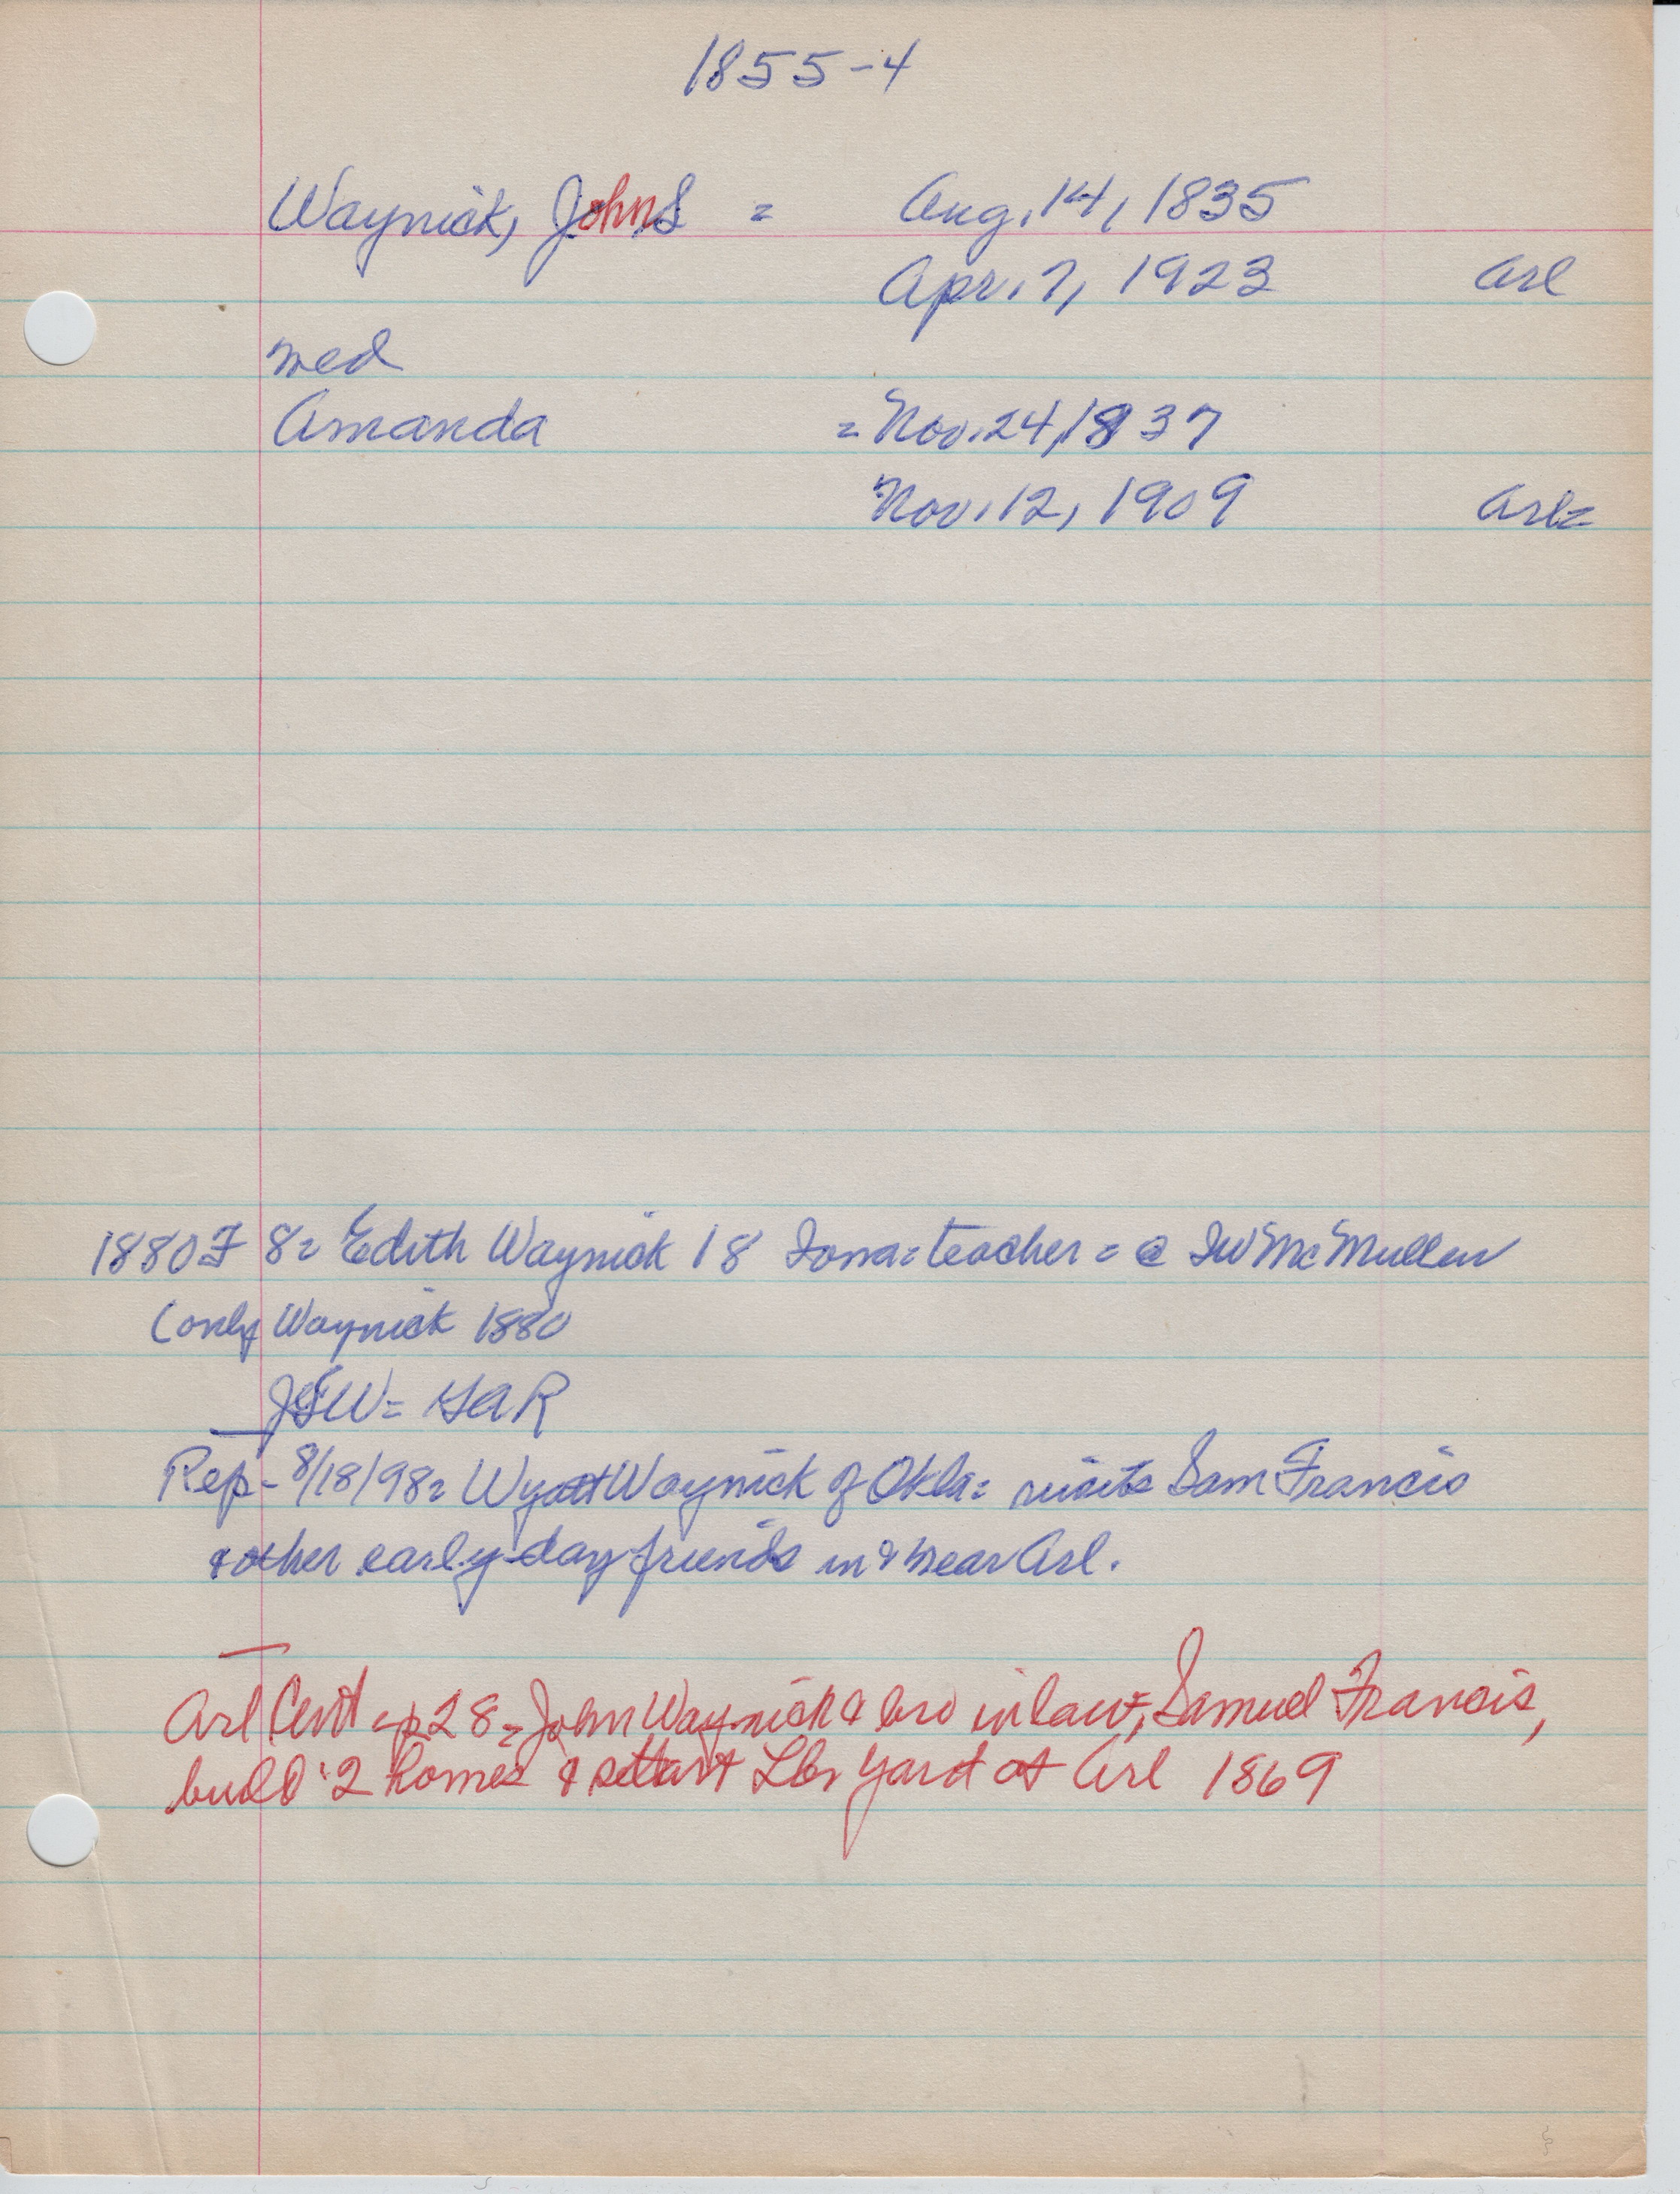 1855-4
Waynick, John S = Aug. 14, 1835
Apr. 7, 1923 Arl
med
Amanda = Nov. 24, 1837
Nov. 12, 1909 Arl=
1880 F 8= Edith Waynick 18 Iowa= teacher = @ IW McMullen
(only Waynick 1880
JSW = GAR
Rep - 8/18/98= Wyatt Waynick of Okla= visits Sam Francis
& other early-day friends in & near Arl.
Arl Cent - p 28 = John Waynick & bro in law, Samuel Francis,
build 2 homes & start Lbr Yard at Arl 1869